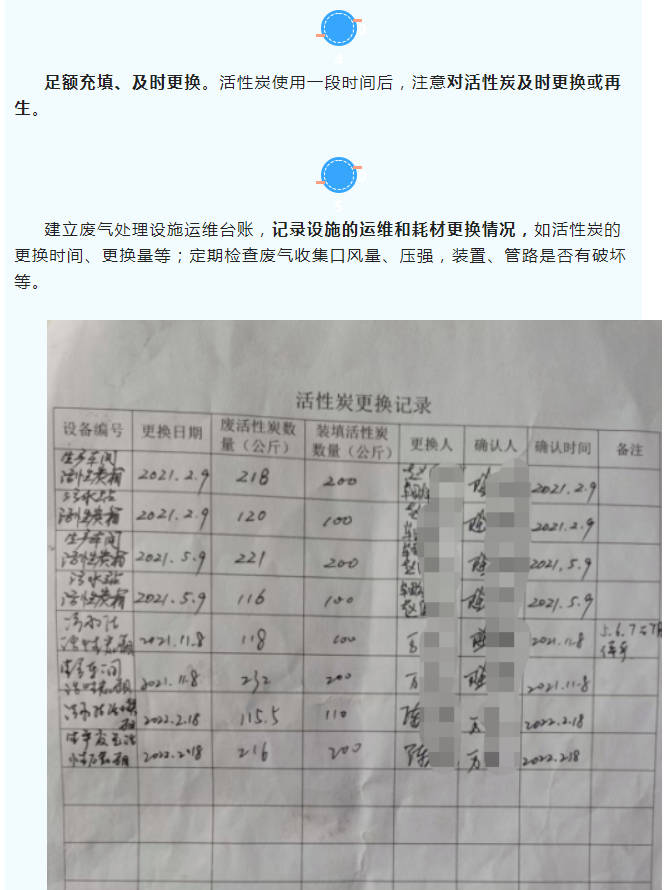 足额充填、及时更换。活性炭使用一段时间后，注意对活性炭及时更换或再
生。
建立废气处理设施运维台账，记录设施的运维和耗材更换情况，如活性炭的
更换时间、更换量等；定期检查废气收集口风量、压强，装置、管路是否有破坏
等。
活性炭更换记录
设备编号 更换日期 废活性炭数量（公斤） 装填活性炭数量（公斤） 更换人 确认人 确认时间 备注
生产车间活性炭箱 2021.2.9 218 200 2021.2.9
污水站活性炭箱 2021.2.9 120 100 2021.2.9
生产车间活性炭箱 2021.5.9 221 200 2021.5.9
污水站活性炭箱 2021.5.9 116 100 2021.5.9
2021.11.8 118 100 万 2021.11.8 5.6.7
2021.11.8 232 200 万 2021.11.8
2022.2.18 115.5 110 陈 万 2022.2.18
2022.2.18 216 200 陈 万 2022.2.18